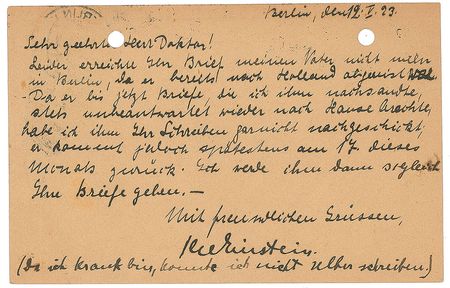 Berlin, den 12. V. 23.
Sehr geehrter Herr Doktor!
Leider erreichte Ihr Brief meinen Vater nicht mehr
in Berlin, da er bereits nach Holland abgereist war.
Da er bis jetzt Briefe, die ich ihm nachsandte,
stets unbeantwortet wieder nach Hause brachte,
habe ich ihm Ihr Schreiben garnicht nachgeschickt;
er kommt jedoch spätestens am 17. dieses
Monats zurück. Ich werde ihm dann sogleich
Ihre Briefe geben. —
Mit freundlichen Grüssen,
Einstein.
(Da ich krank bin, konnte ich nicht selber schreiben.)